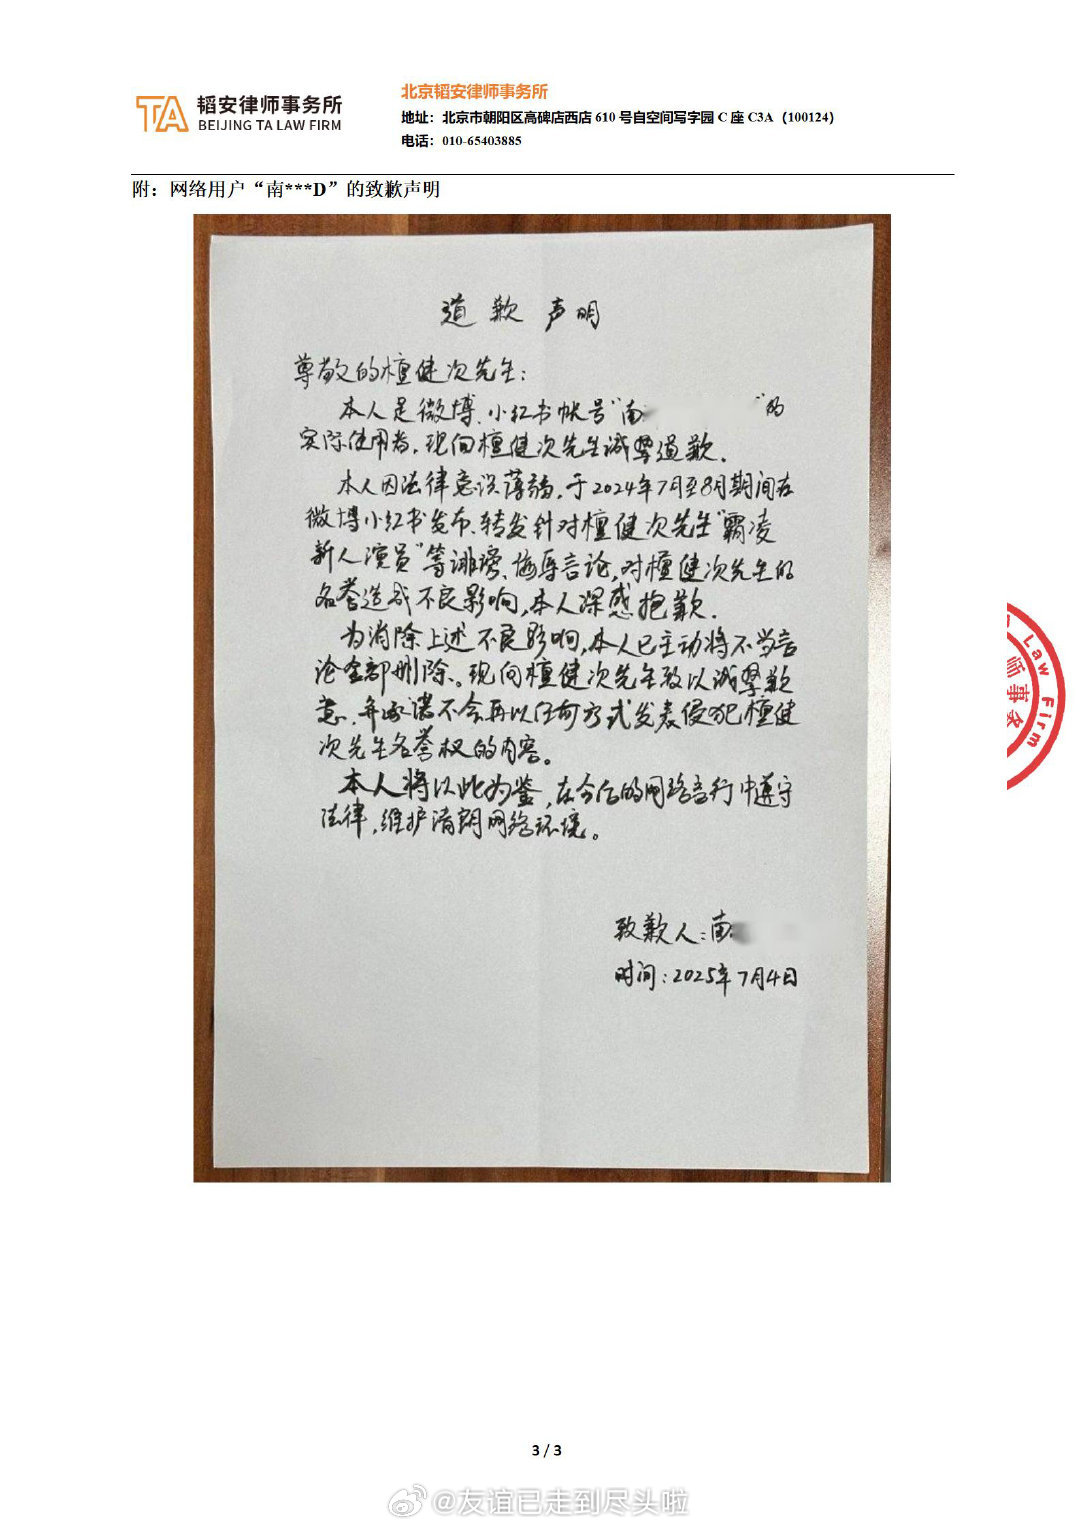 TA 韬安律师事务所
BEIJING TA LAW FIRM
北京韬安律师事务所
地址：北京市朝阳区高碑店西店 610 号自空间写字园 C 座 C3A（100124）
电话：010-65403885
附：网络用户“南***D”的致歉声明
道歉声明
尊敬的檀健次先生：
本人是微博、小红书帐号“南 ”的
实际使用者，现向檀健次先生诚挚道歉。
本人因法律意识薄弱，于2024年7月至8月期间在
微博小红书发布、转发针对檀健次先生“霸凌
新人演员”等诽谤、侮辱言论，对檀健次先生的
名誉造成不良影响，本人深感抱歉。
为消除上述不良影响，本人已主动将不当言
论全部删除。现向檀健次先生致以诚挚歉
意，并承诺不会再以任何方式发表侵犯檀健
次先生名誉权的内容。
本人将以此为鉴，在今后的网络言行中遵守
法律，维护清朗网络环境。
致歉人：南
时间：2025年7月4日
Law Firm
师事务
3 / 3
@友谊已走到尽头啦